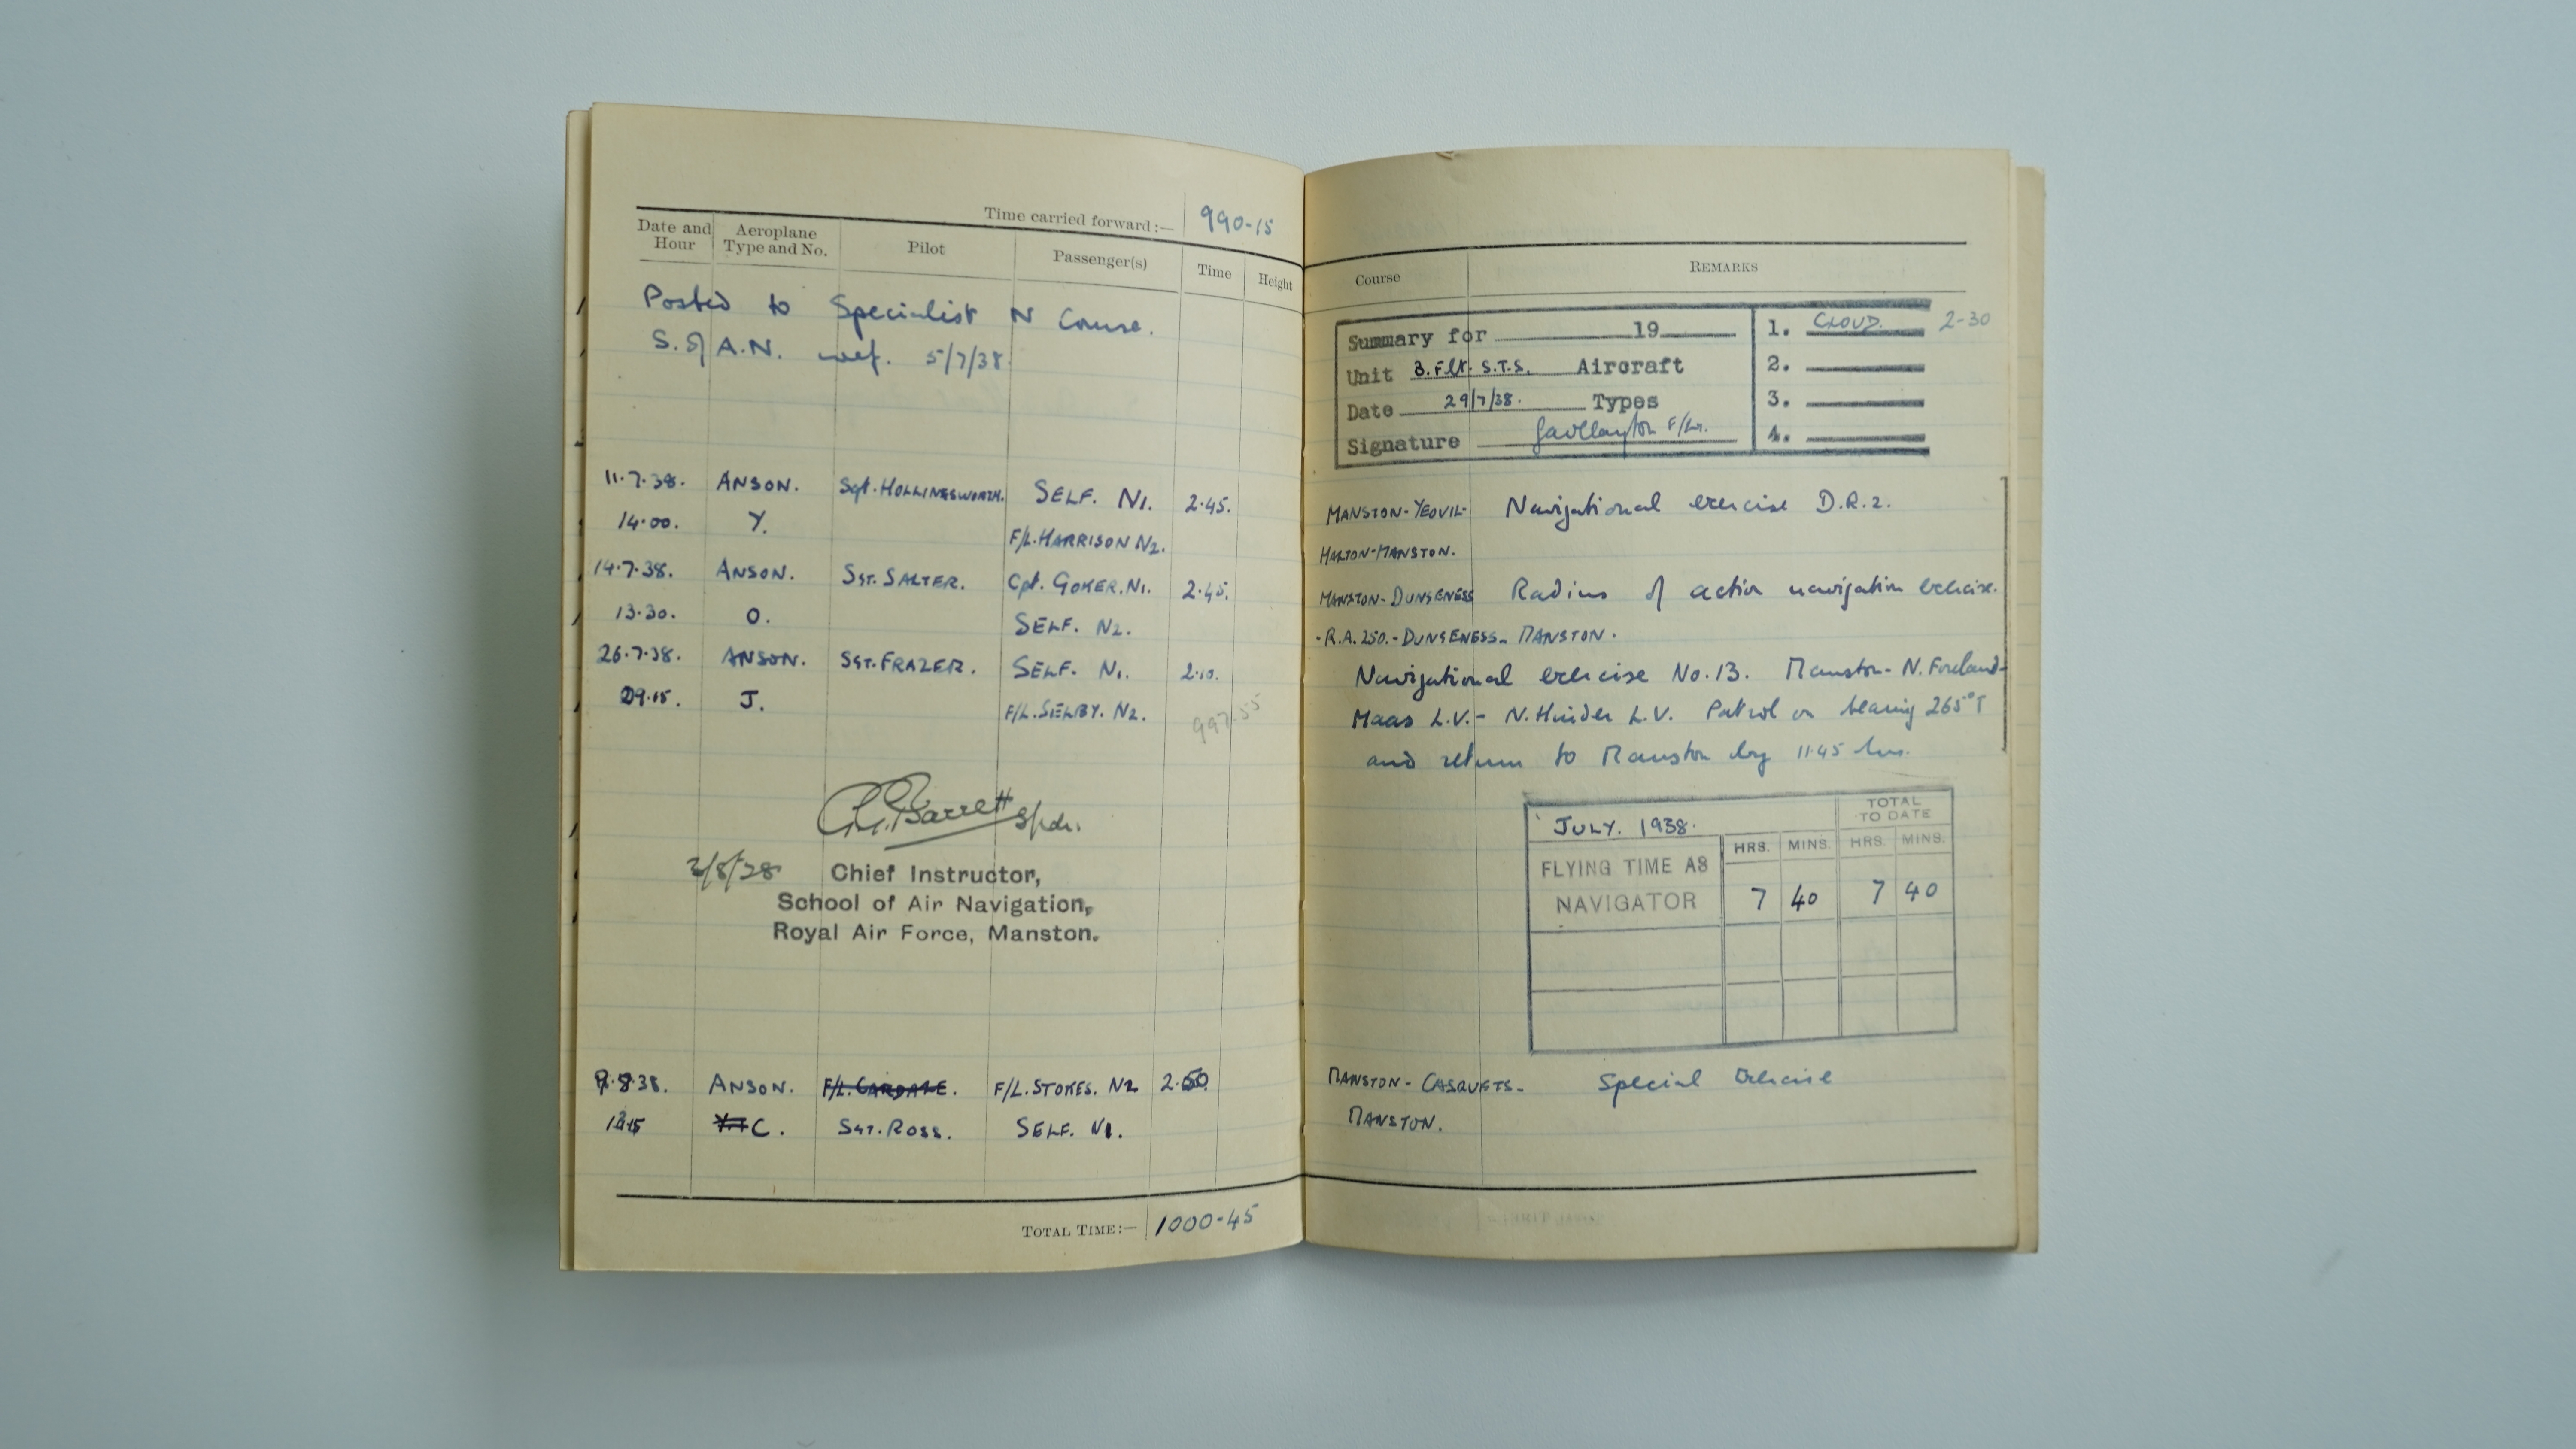 Time carried forward :— 990-15
Date and Hour Aeroplane Type and No. Pilot Passenger(s) Time Height
Posted to Specialist N Course.
S. of A.N. wef. 5/7/38.
11.7.38. ANSON. Sgt. HOLLINGSWORTH. SELF. N1. 2.45.
14.00. Y. F/L. HARRISON N2.
14.7.38. ANSON. SGT. SALTER. Cpt. GOKER. N1. 2.45.
13.30. O. SELF. N2.
26.7.38. ANSON. SGT. FRAZER. SELF. N1. 2.10.
09.15. J. F/L. SELBY. N2. 997.55
Barrett S/Ldr.
2/8/38
Chief Instructor,
School of Air Navigation,
Royal Air Force, Manston.
9.8.38. ANSON. F/L. CARDALE. F/L. STOKES. N2 2.50
C. SGT. ROSS. SELF. N1.
TOTAL TIME:— 1000-45
Course REMARKS
Summary for 19 1. CLOUD. 2-30
Unit B. Flt. S.T.S. Aircraft 2.
Date 29/7/38. Types 3.
Signature F/Lt. 4.
MANSTON-YEOVIL- Navigational exercise D.R.2.
HALTON-MANSTON.
MANSTON-DUNGENESS Radius of action navigation exercise.
-R.A.250.-DUNGENESS-MANSTON.
Navigational exercise No.13. Manston-N. Foreland-
Maas L.V.- N. Hinder L.V. Patrol on bearing 265°T
and return to Manston by 11.45 hrs.
JULY. 1938. TOTAL TO DATE
HRS. MINS. HRS. MINS.
FLYING TIME AS
NAVIGATOR 7 40 7 40
MANSTON-CASQUETS- Special Exercise
MANSTON.